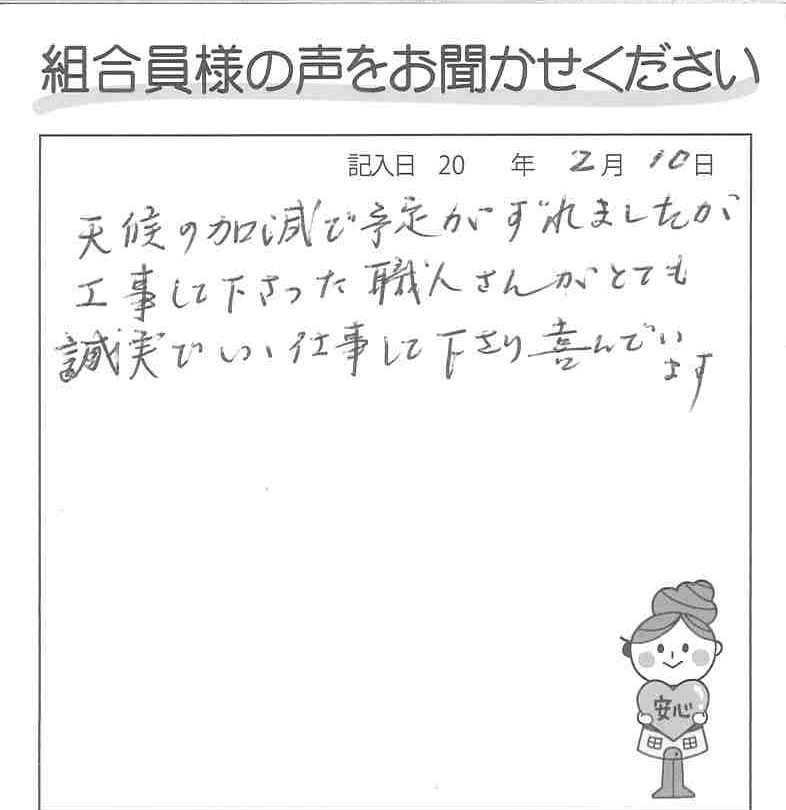 組合員様の声をお聞かせください
記入日 20 年 2月 10日
天候の加減で予定がずれましたが
工事して下さった職人さんがとても
誠実でいい仕事して下さり喜んでい
ます
安心